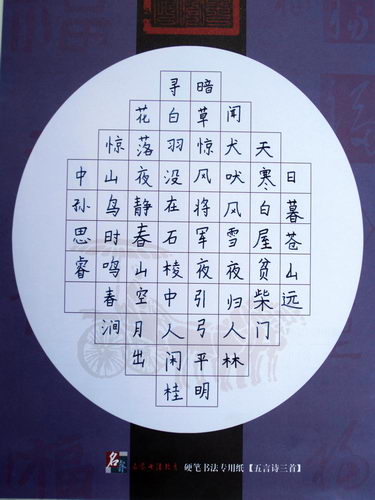 日暮苍山远
天寒白屋贫柴门
闻犬吠风雪夜归人林
暗草惊风将军夜引弓平明
寻白羽没在石棱中人闲桂
花落夜静春山空月出
惊山鸟时鸣春涧
中孙思睿
硬笔书法专用纸【五言诗三首】